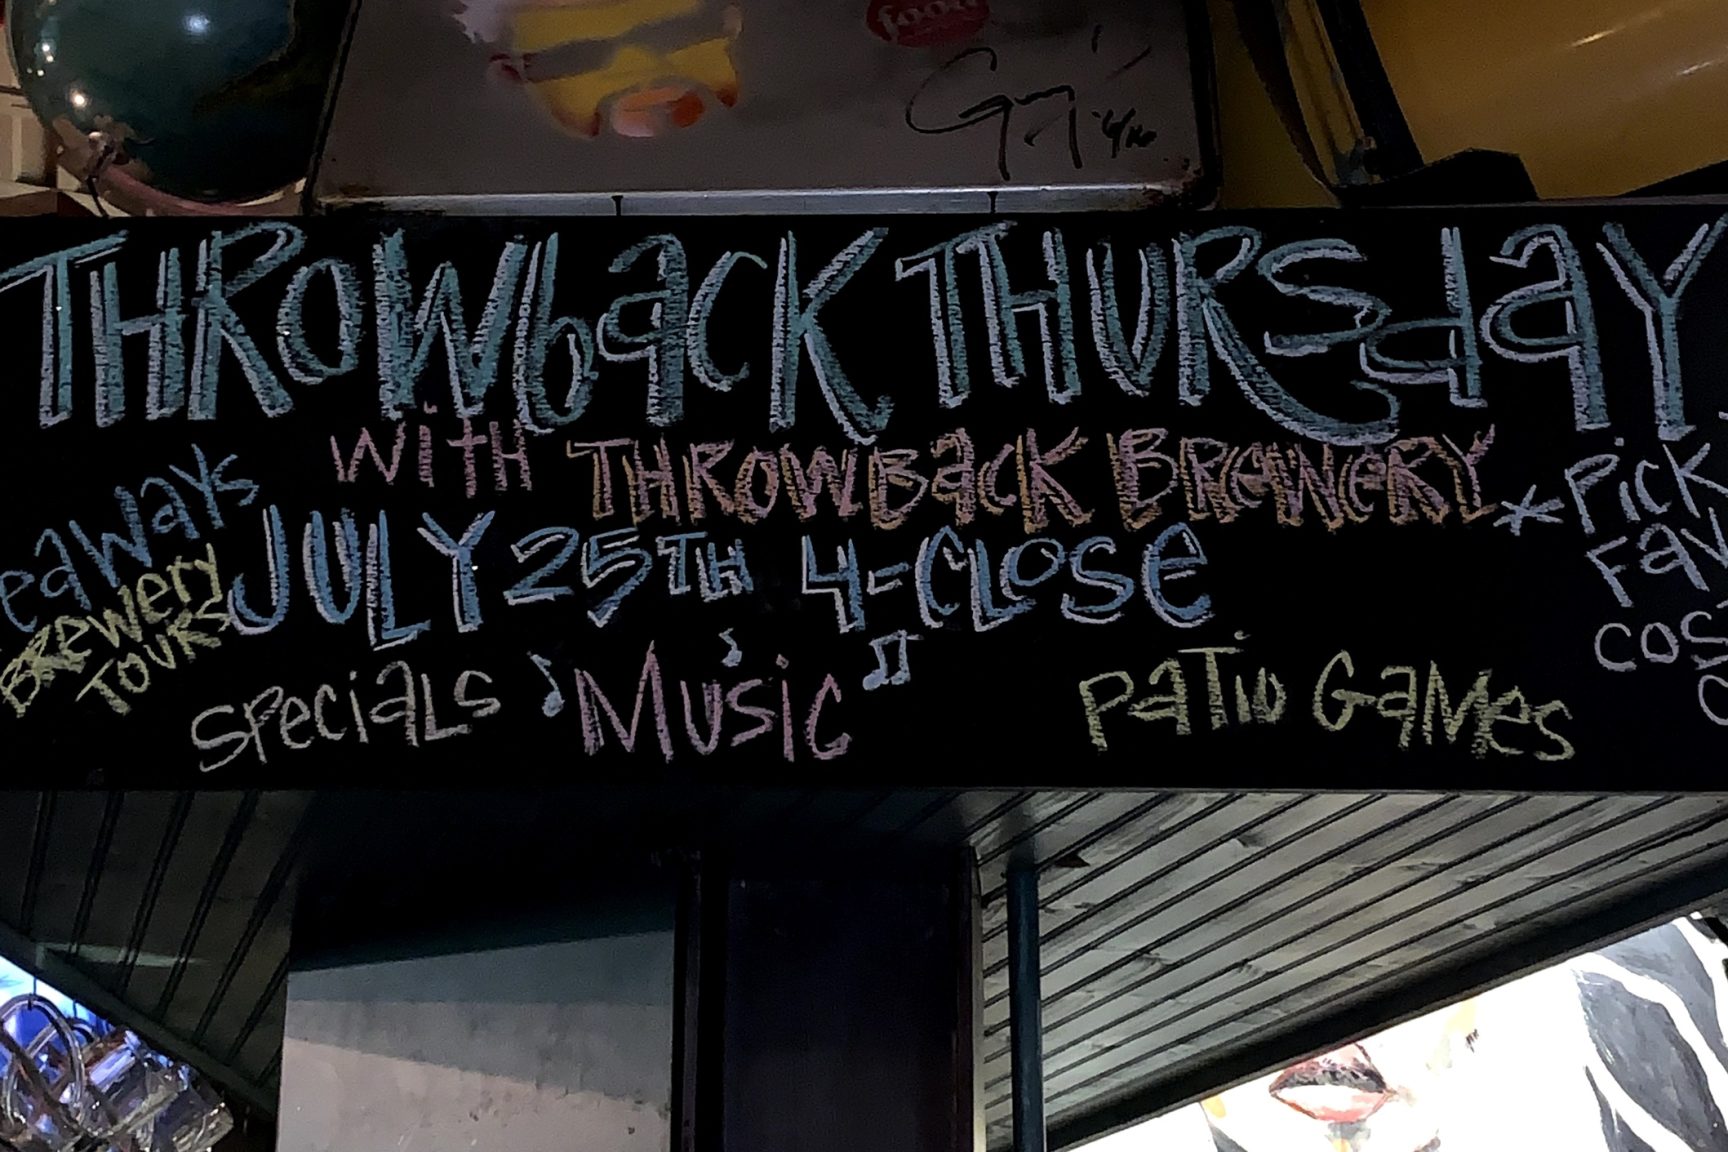 food
Guy '6/16
THROWBACK THURSDAY
with THROWBACK BREWERY
JULY 25TH 4-CLOSE
eaways
Brewery
Tours
specials Music Patio Games
* Pick
Fav
cos